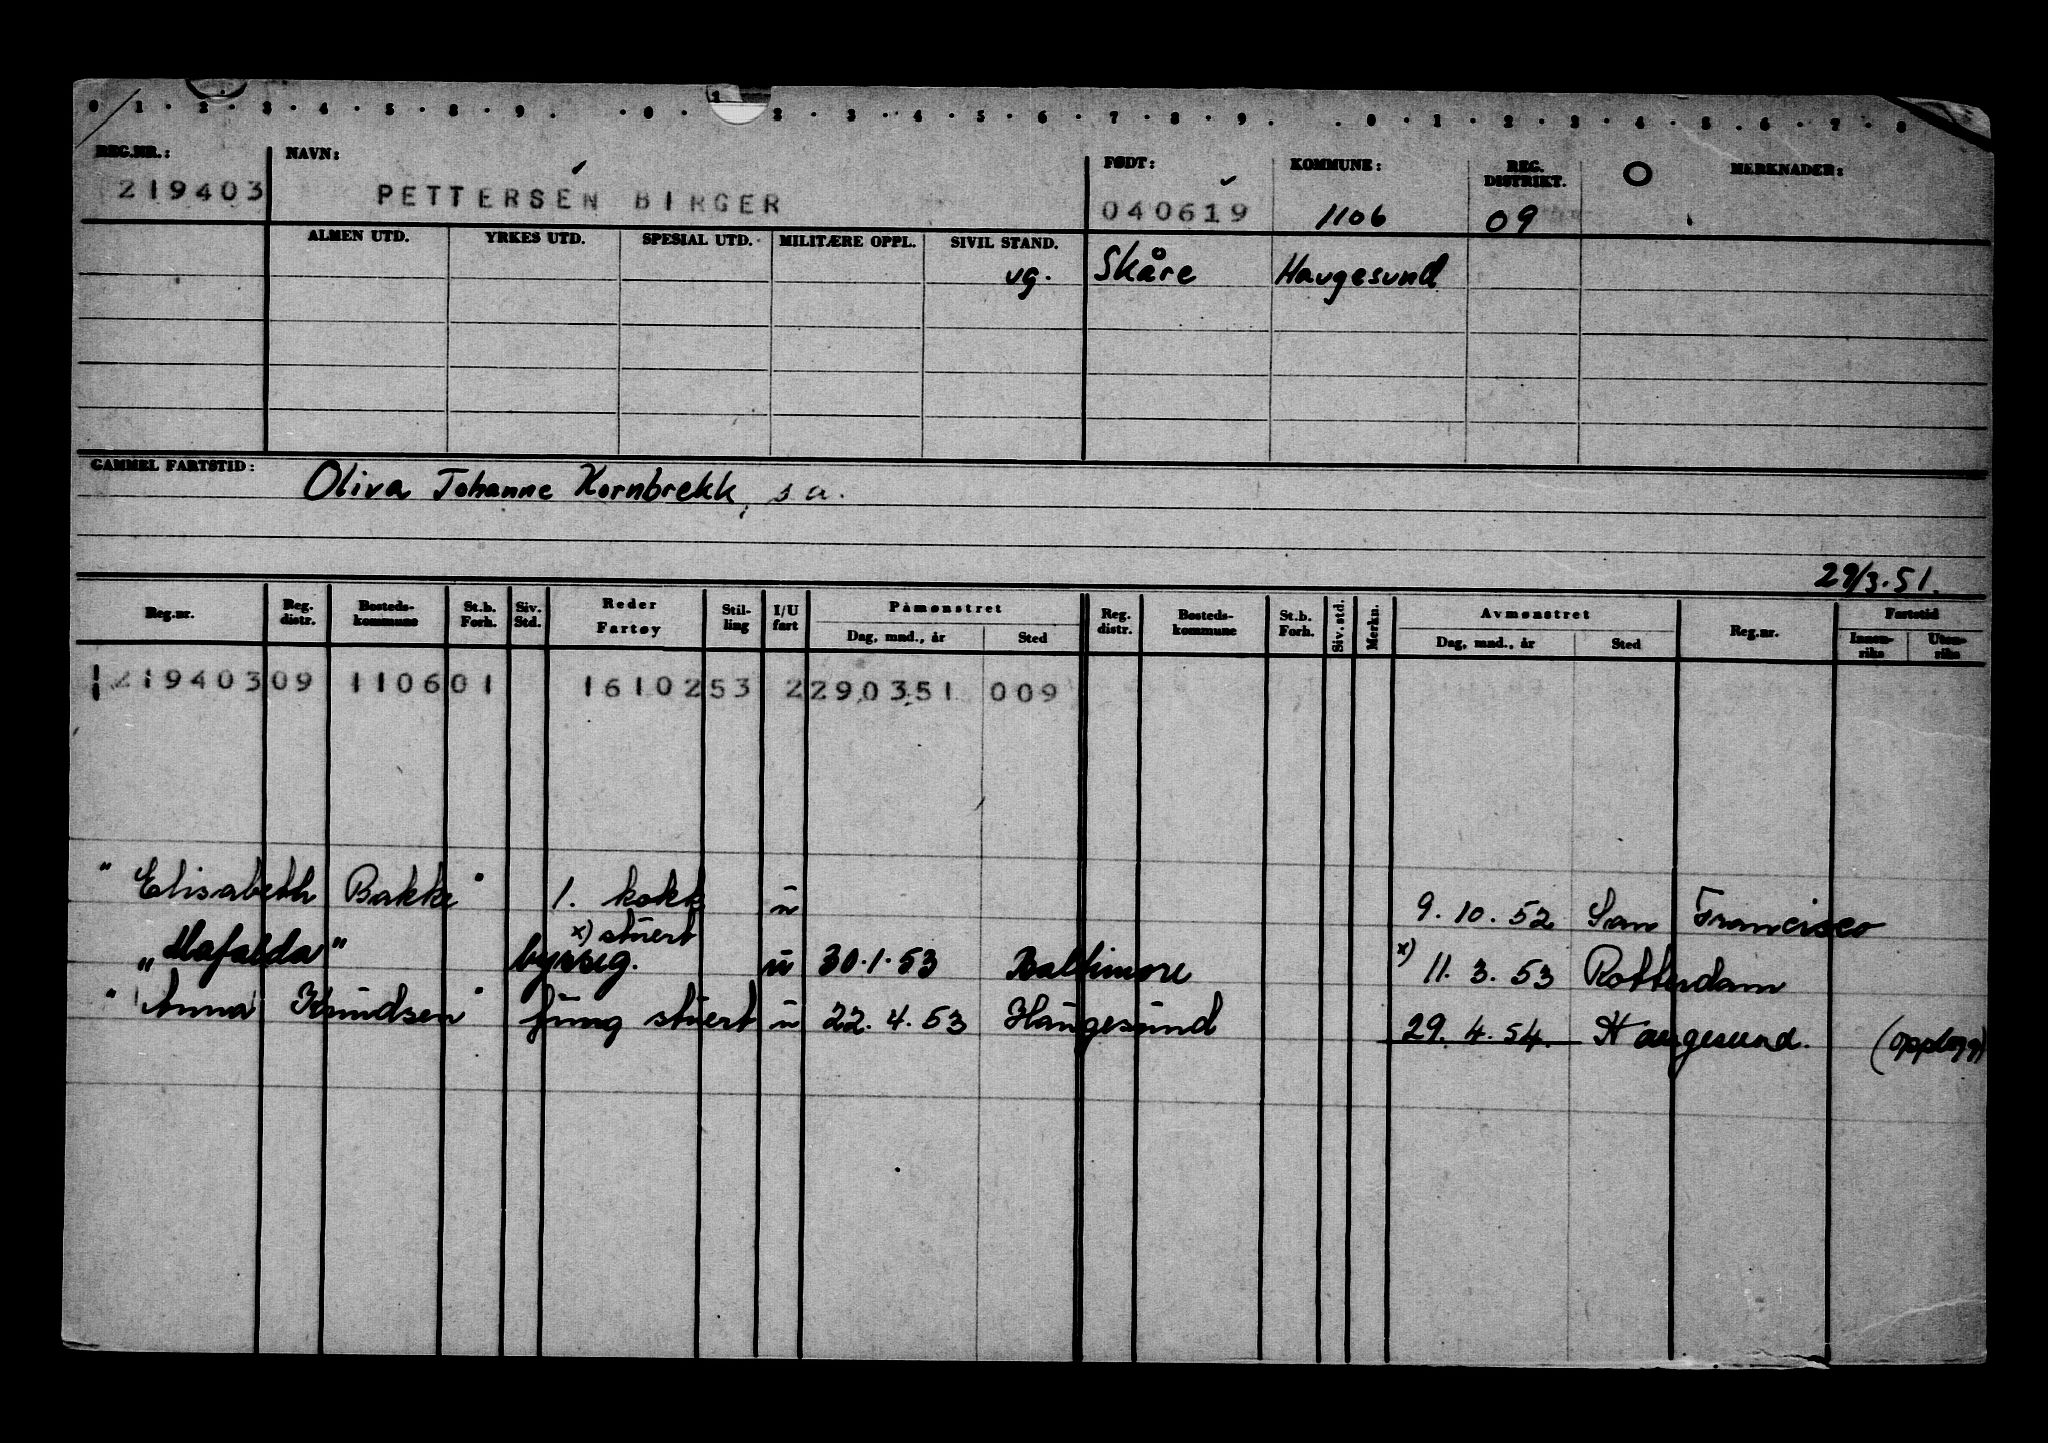 0 1 · 2 · 3 · 4 · 5 · 8 · 9 . · 0 · 1 2 · 3 · 4 · 5 · 6 · 7 · 8 · 9 . . 0 · 1 · 2 · 3 · 4 · 5 . 6 · 7 · 8
REG.NR.: NAVN: FØDT: KOMMUNE: REG. DISTRIKT. O MERKNADER:
219403 PETTERSEN BIRGER 040619 1106 09
ALMEN UTD. YRKES UTD. SPESIAL UTD. MILITÆRE OPPL. SIVIL STAND.
vg. Skåre Haugesund
GAMMEL FARTSTID: Oliva Johanne Kornbrekk, s a.
29/3.51.
Reg.nr. Reg. distr. Bosteds-kommune St.b. Forh. Siv. Std. Reder Fartøy Stil-ling I/U fart Påmønstret Dag, mnd., år Sted Reg. distr. Bosteds-kommune St.b. Forh. Siv. std. Merkn. Avmønstret Dag, mnd., år Sted Reg.nr. Fartstid Innen-riks Uten-riks
219403 09 1106 01 16102 53 2 290351 009
"Elisabeth Bakke" 1. kokk u 9.10.52 San Francisco
x) stuert
"Mafalda" bysseg. u 30.1.53 Baltimore x) 11.3.53 Rotterdam
"Anna Knudsen" fung stuert u 22.4.53 Haugesund 29.4.54. Haugesund. (opplagg)